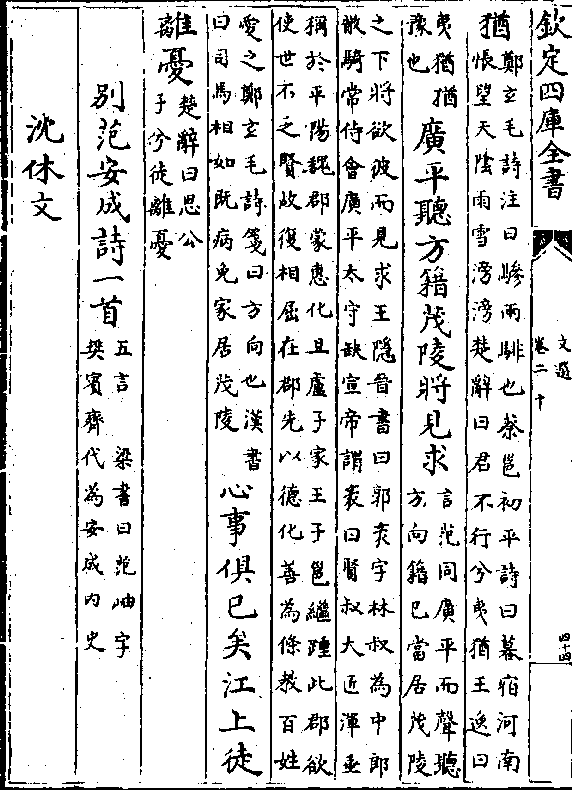 欽定四庫全書
文選
卷二十
四十四
猶鄭玄毛詩注曰驂兩騑也蔡邕初平詩曰暮宿河南
悵望天陰雨雪滂滂楚辭曰君不行兮夷猶王逸曰
夷猶猶
豫也廣平聽方籍茂陵將見求言范同廣平而聲聽
方向籍已當居茂陵
之下將欲彼而見求王隱晉書曰郭𠅤字林叔為中郎
散騎常侍會廣平太守缺宣帝謂袤曰賢叔大匠渾垂
稱於平陽魏郡蒙惠化且盧子家王子邕繼踵此郡欲
使世不乏賢故復相屈在郡先以德化善為條教百姓
愛之鄭玄毛詩箋曰方向也漢書
曰司馬相如既病免家居茂陵心事俱已矣江上徒
離憂楚辭曰思公
子兮徒離憂
别范安成詩一首五言 梁書曰范岫字
樊賓齊代為安成内史
沈休文